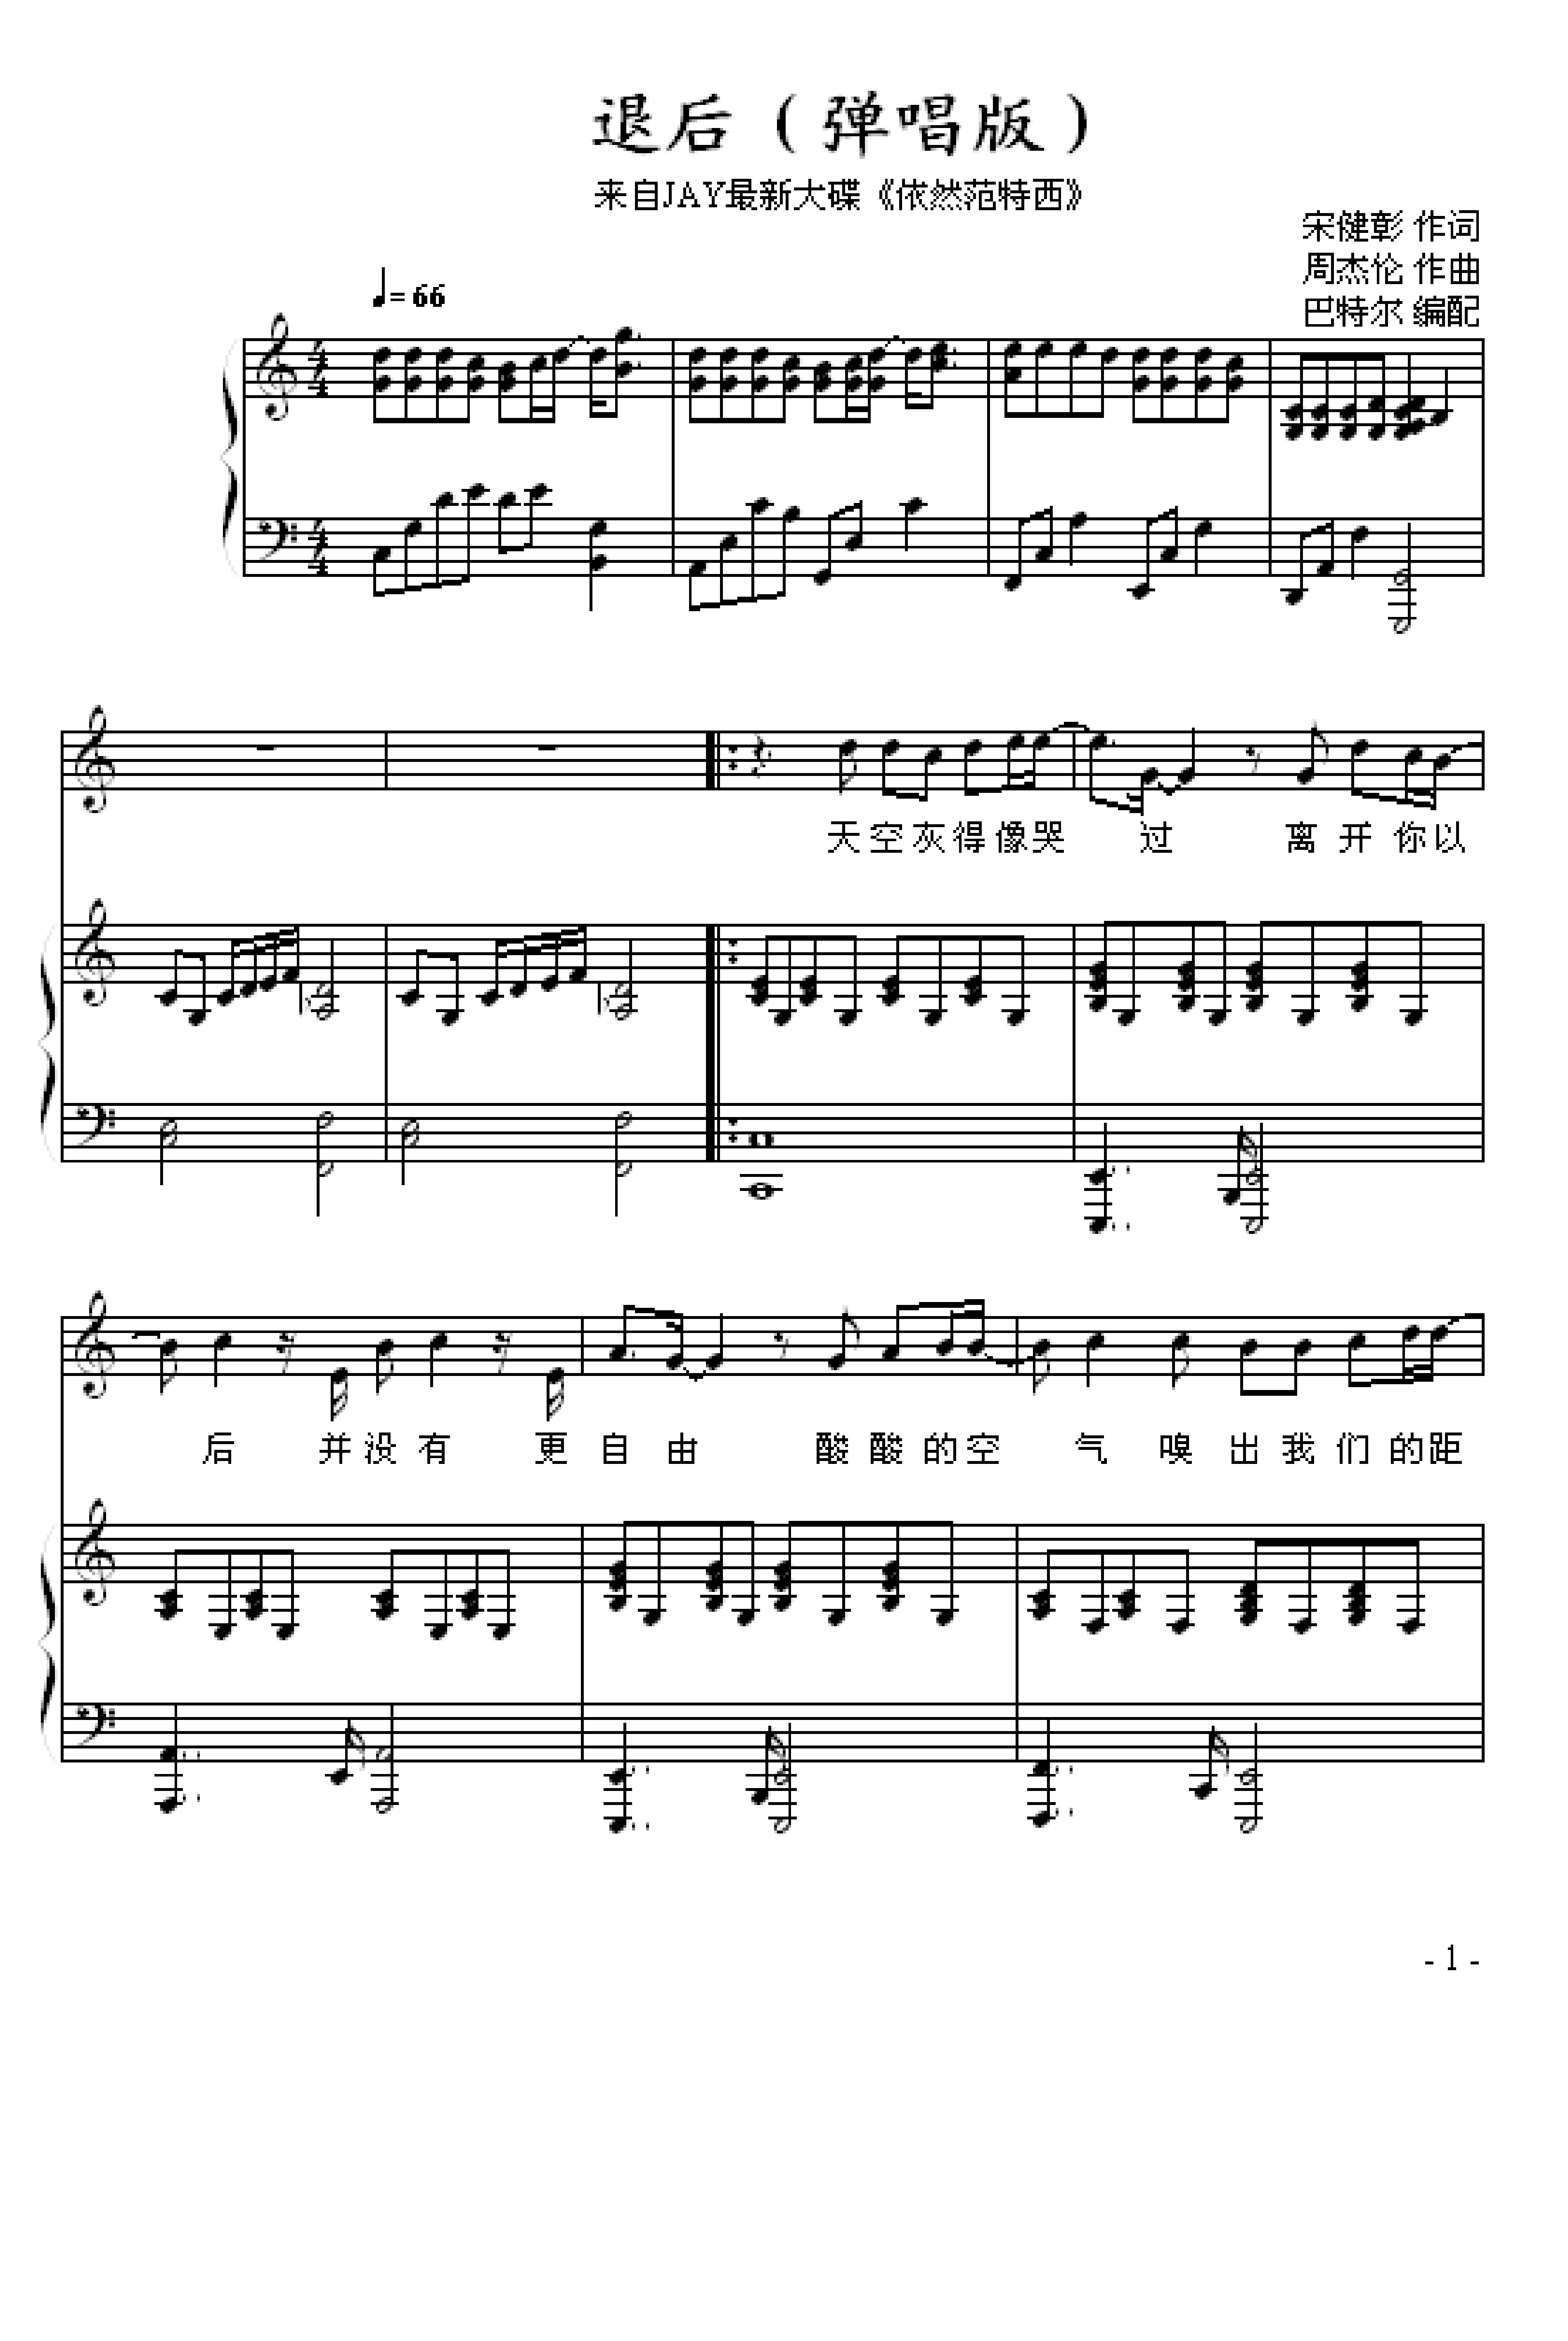 退后（弹唱版）
来自JAY最新大碟《依然范特西》
宋健彰 作词
周杰伦 作曲
巴特尔 编配
♩= 66
天空灰得像哭 过 离 开 你以
后 并没有 更 自 由 酸酸的空 气 嗅 出 我 们 的距
- 1 -